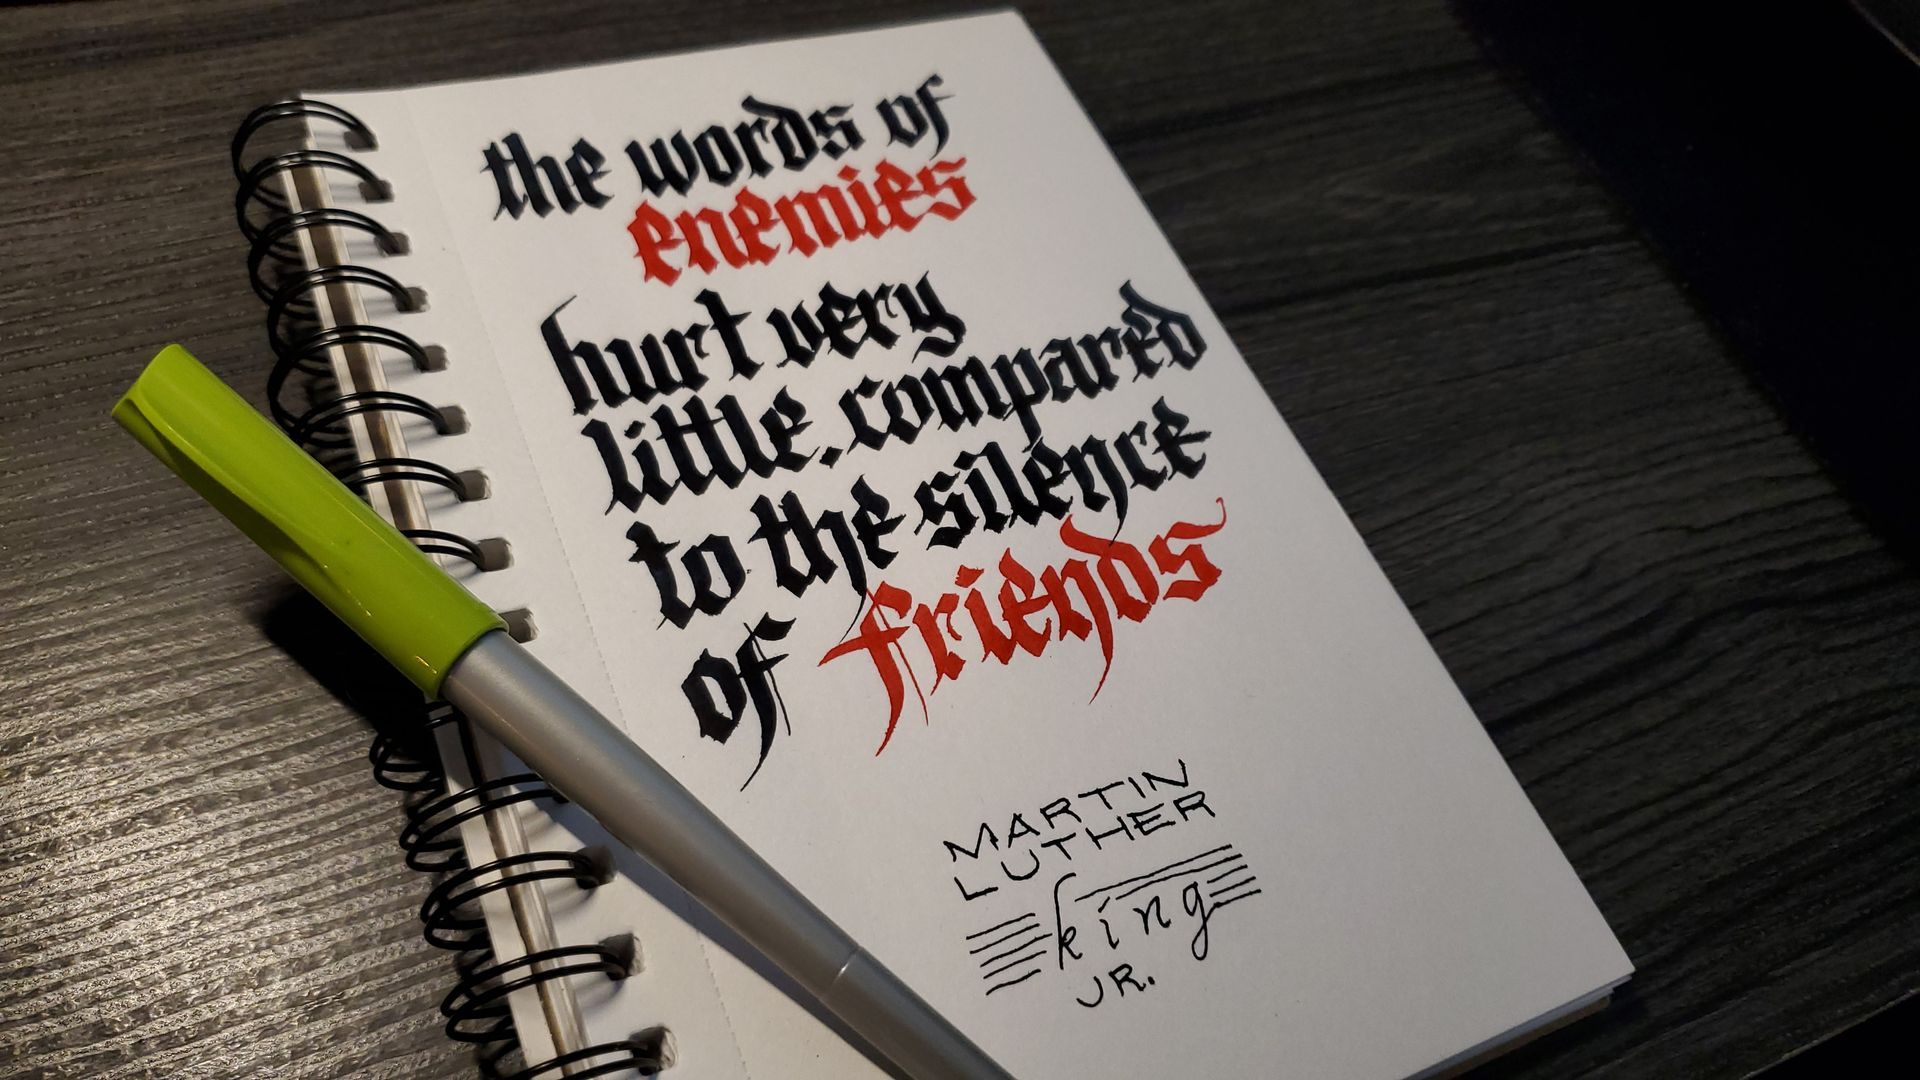 the words of
enemies
hurt very
little. compared
to the silence
of friends
MARTIN
LUTHER
king
JR.